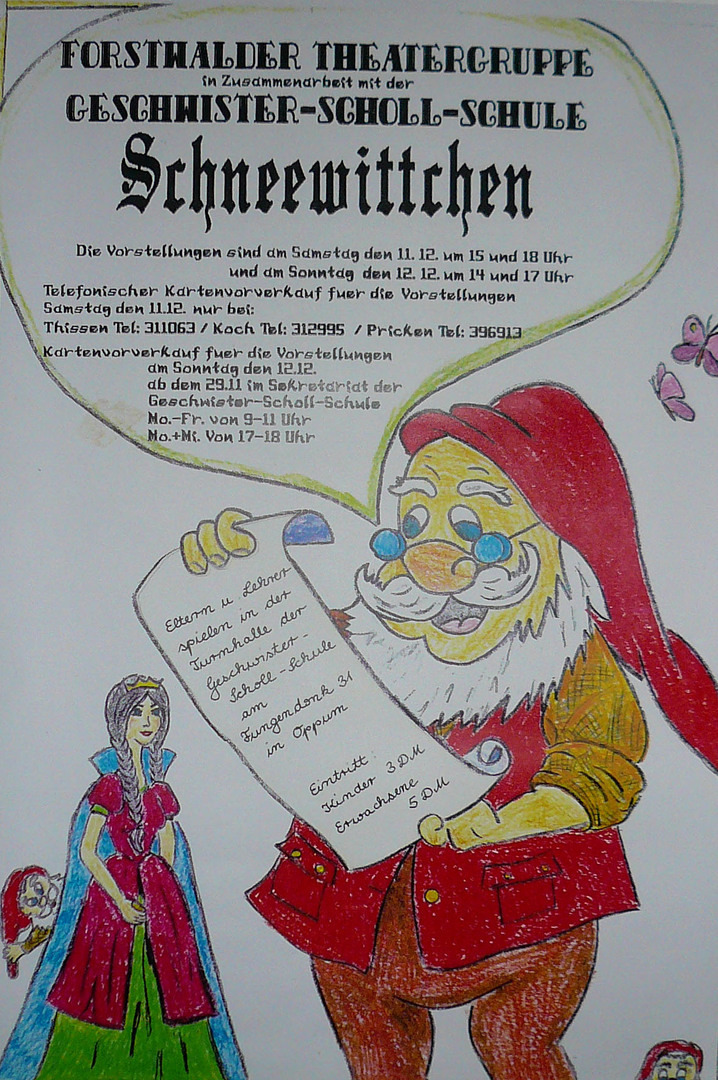 FORSTWALDER THEATERGRUPPE
in Zusammenarbeit mit der
GESCHWISTER-SCHOLL-SCHULE
Schneewittchen
Die Vorstellungen sind am Samstag den 11. 12. um 15 und 18 Uhr
und am Sonntag den 12. 12. um 14 und 17 Uhr
Telefonischer Kartenvorverkauf fuer die Vorstellungen
Samstag den 11.12. nur bei:
Thissen Tel: 311063 / Koch Tel: 312995 / Pricken Tel: 396913
Kartenvorverkauf fuer die Vorstellungen
am Sonntag den 12.12.
ab dem 29.11 im Sekretariat der
Geschwister-Scholl-Schule
Mo.-Fr. von 9-11 Uhr
Mo.+Mi. Von 17-18 Uhr
Eltern u. Lehrer
spielen in der
Turnhalle der
Geschwister-
Scholl-Schule
am
Fungendonk 31
in Oppum
Eintritt:
Kinder 3 DM
Erwachsene
5 DM